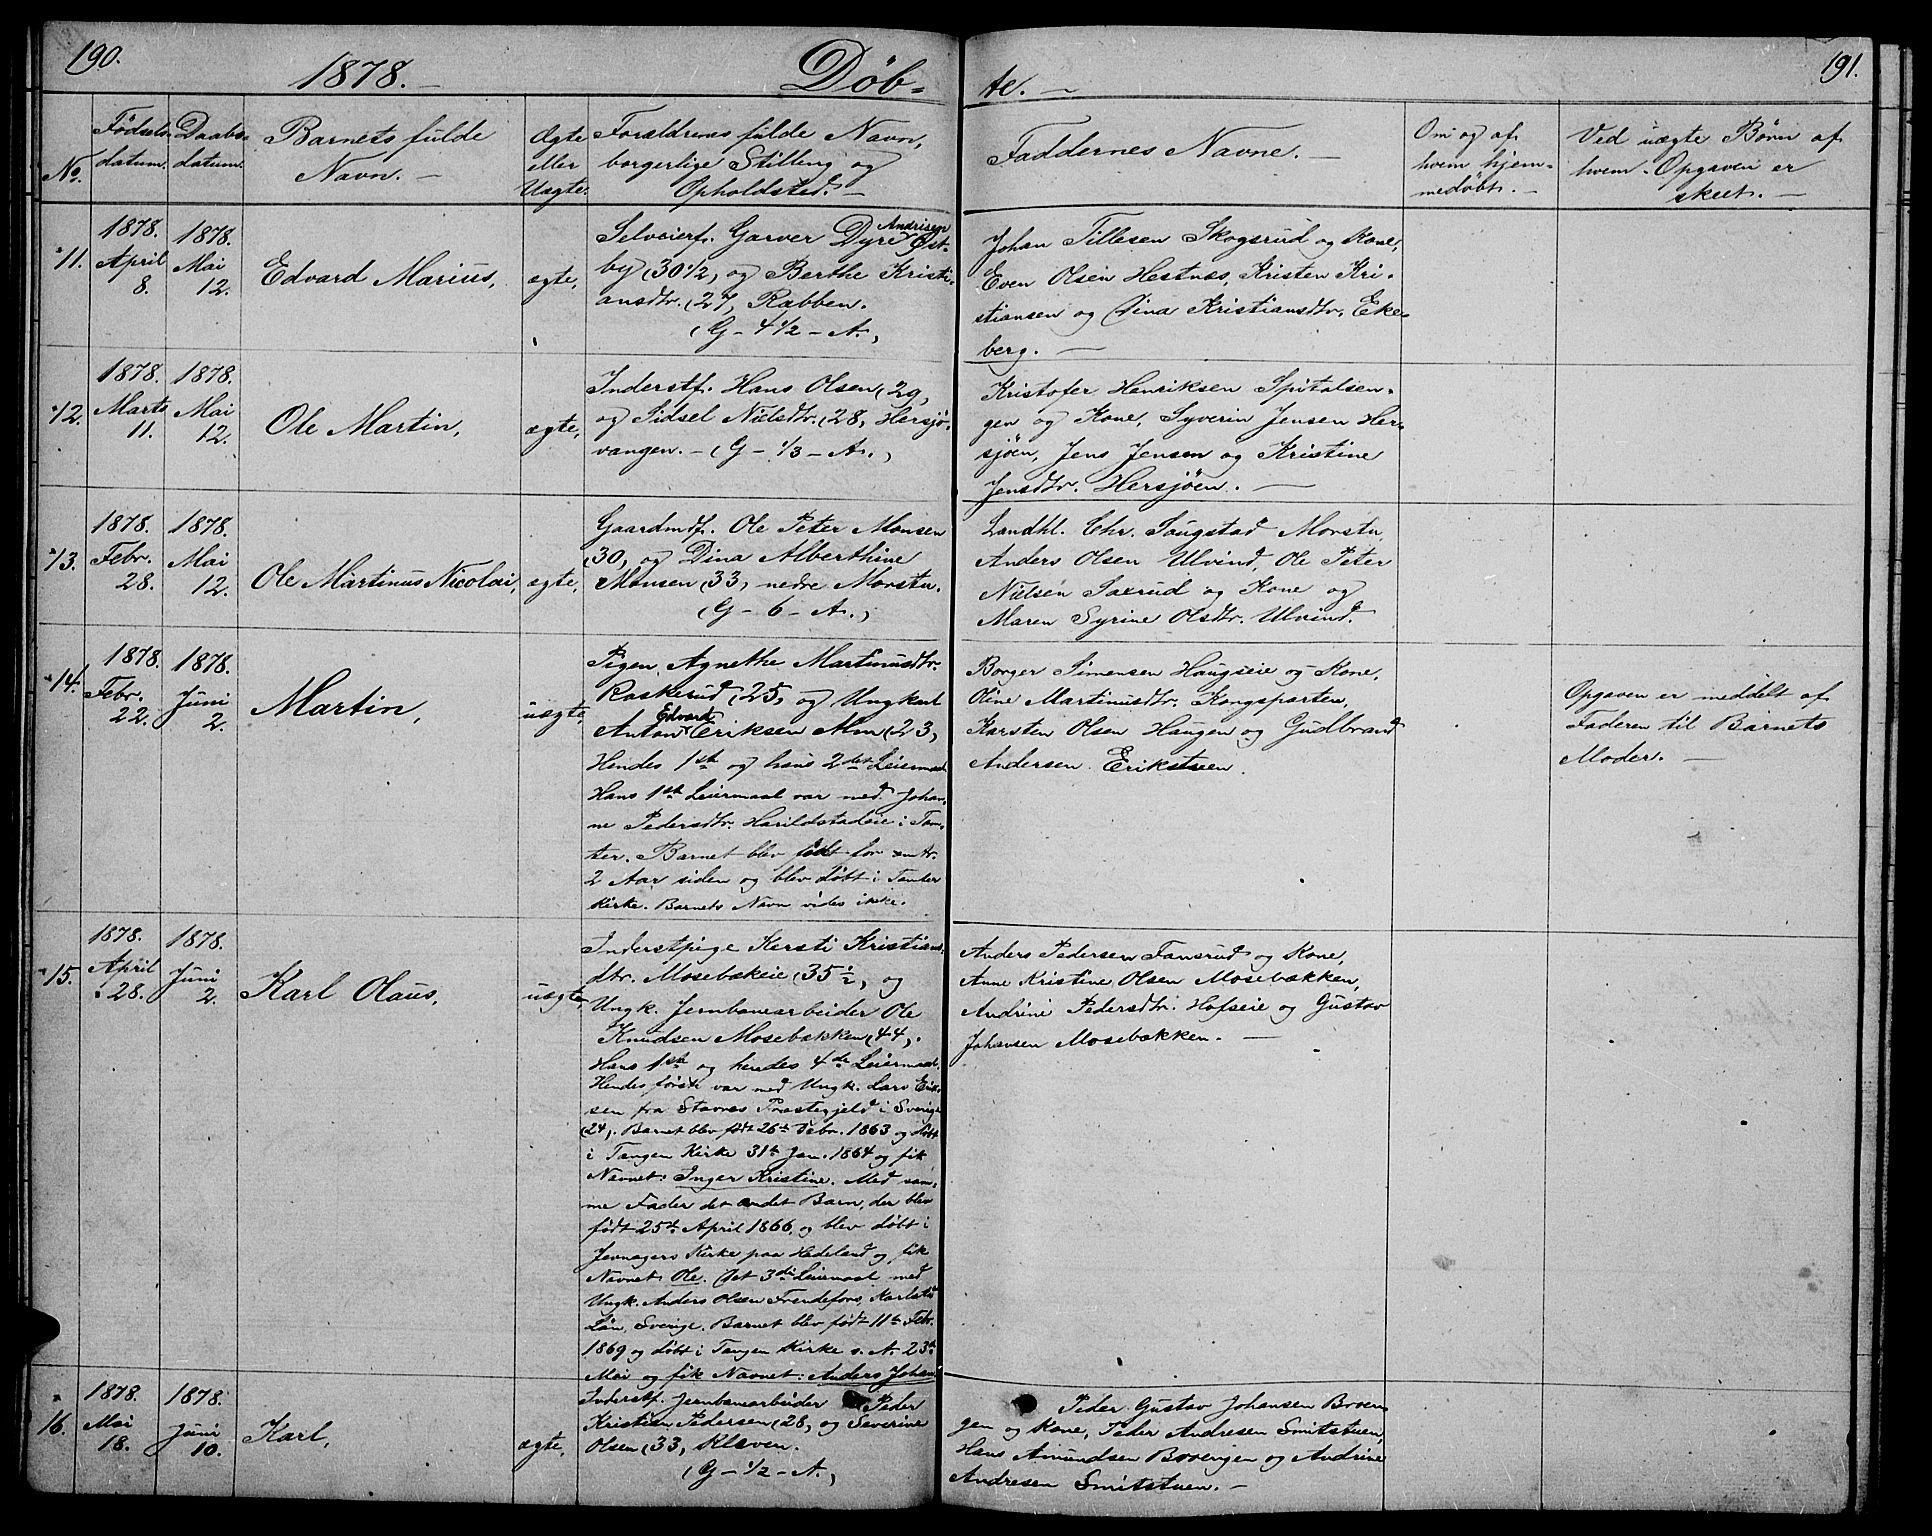 190.
1878. –
Døb-
te. –
191.
No.
Fødsels-
datum.
Daabs-
datum.
Barnets fulde
Navn. –
Ægte
eller
Uægte.
Forældrenes fulde Navn,
borgerlige Stilling og
Opholdsted. –
Faddernes Navne. –
Om og af
hvem hjem-
medøbt. –
Ved uægte Børn af
hvem Opgaven er
skeet. –
11.
1878.
April
8.
1878.
Mai
12.
Edvard Marius,
ægte,
Selveierf. Garver Dyre Andrisen Øst-
by (30 1/2, og Berthe Kristi-
ansdtr. (27, Rabben.
(G – 4 1/2 – A.,
Johan Tillesen Skogsrud og Kone,
Even Olsen Hestnæs, Kristen Kri-
stiansen og Dina Kristiansdtr. Eke-
berg. –
12.
1878.
Marts
11.
1878.
Mai
12.
Ole Martin,
ægte,
Inderstf. Hans Olsen (29,
og Sidsel Nielsdtr. (28, Hersjø-
vangen. – (G – 1/3 – A.,
Kristofer Henriksen Spitalsen-
gen og Kone, Syverin Jensen Her-
sjøen, Jens Jensen og Kristine
Jensdtr. Hersjøen. –
13.
1878.
Febr.
28.
1878.
Mai
12.
Ole Martinus Nicolai,
ægte,
Gaardmdf. Ole Peter Monsen
(30, og Dina Alberthine
Monsen (33, nedre Morstu.
(G – 6 – A.,
Landhl. Chr. Saugstad Morstu,
Anders Olsen Ulvind, Ole Peter
Nielsen Saxrud og Kone og
Maren Syrine Olsdtr. Ulvind.
14.
1878.
Febr.
22.
1878.
Juni
2.
Martin,
uægte,
Pigen Agnethe Martinusdtr.
Raskerud (25, og Ungkarl
Anton Edvard Eriksen Mon (23,
Hendes 1ste og hans 2det Leiermaal.
Hans 1ste Leiermaal var med Johan-
ne Pedersdtr. Harildstadeie i Tom-
ter. Barnet blev født for
2 Aar siden og blev døbt i Tomter
Kirke. Barnets Navn vides ikke.
Borger Simensen Haugseie og Kone,
Oline Martinusdtr. Kongsparten,
Karsten Olsen Haugen og Gudbrand
Andersen Erikstuen.
Opgaven er meddelt af
Faderen til Barnets
Moder. –
15.
1878.
April
28.
1878.
Juni
2.
Karl Olaus,
uægte,
Inderstpige Kersti Kristians-
dtr. Mosebækeie (35 1/2, og
Ungk. Jernbanearbeider Ole
Knudsen Mosebækken (44,.
Hans 1ste og hendes 4de Leiermaal.
Hendes første var med Ungk. Lars Erik-
sen fra Stavnes Præstegjeld i Sverige
(24,. Barnet blev født 26th Debr. 1863 og døbt
i Tangen Kirke 31th Jan. 1864 og fik
Navnet: Inger Kristine. Med sam-
me Fader det andet Barn, der blev
født 25th April 1866, og blev døbt i
Jevnagers Kirke paa Hadeland og fik
Navnet Ole. Det 3die Leiermaal med
Ungk. Anders Olsen Frendefors, Karlstad
Län, Sverige. Barnet blev født 11th Febr.
1869 og døbt i Tangen Kirke s. A. 23th
Mai og fik Navnet: Anders Johan.
Anders Pedersen Fansrud og Kone,
Anne Kristine Olsen Mosebækken,
Andrine Pedersdtr. Hofseie og Gustav
Johansen Mosebækken. –
16.
1878.
Mai
18.
1878.
Juni
10.
Karl,
ægte,
Inderstf. Jernbanearbeider Peder
Kristian Pedersen (28, og Severine
Olsen (33, Kleven.
(G – 1/2 – A.,
Peder Gustav Johansen Broen-
gen og Kone, Peder Andresen Smitstuen,
Hans Amundsen Broengen og Andrine
Andresen Smitstuen. –